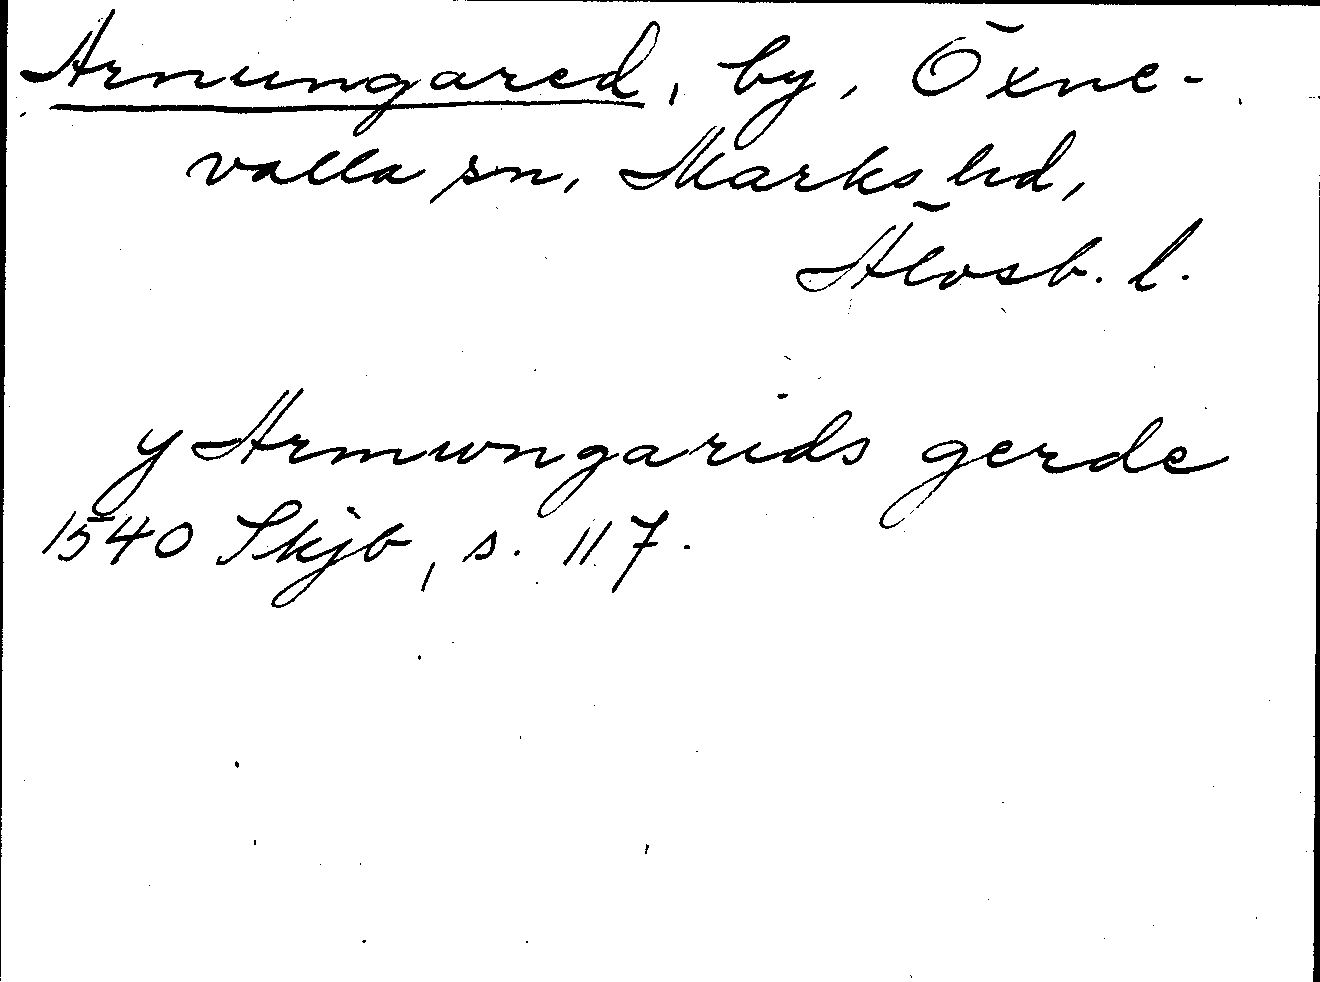 Arnungared, by, Öxne-
valla sn, Marks hd,
Älvsb. l.
y Armwngarids gerde
1540 Skjb, s. 117.